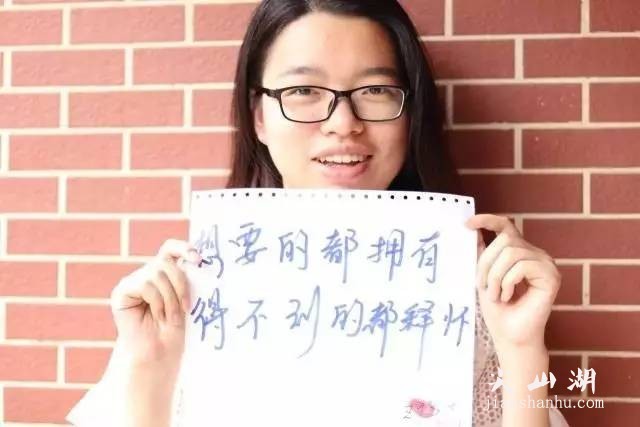 想要的都拥有
得不到的都释怀
山湖
jianshanhu.com